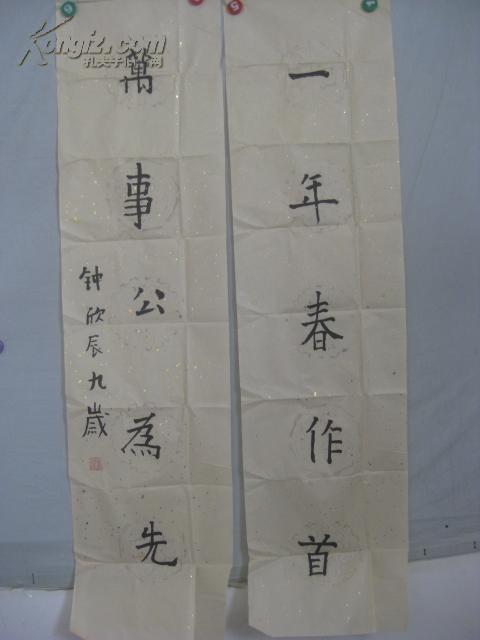 一年春作首
萬事公為先
钟欣辰九歲
Kongfz.com
孔夫子旧书网